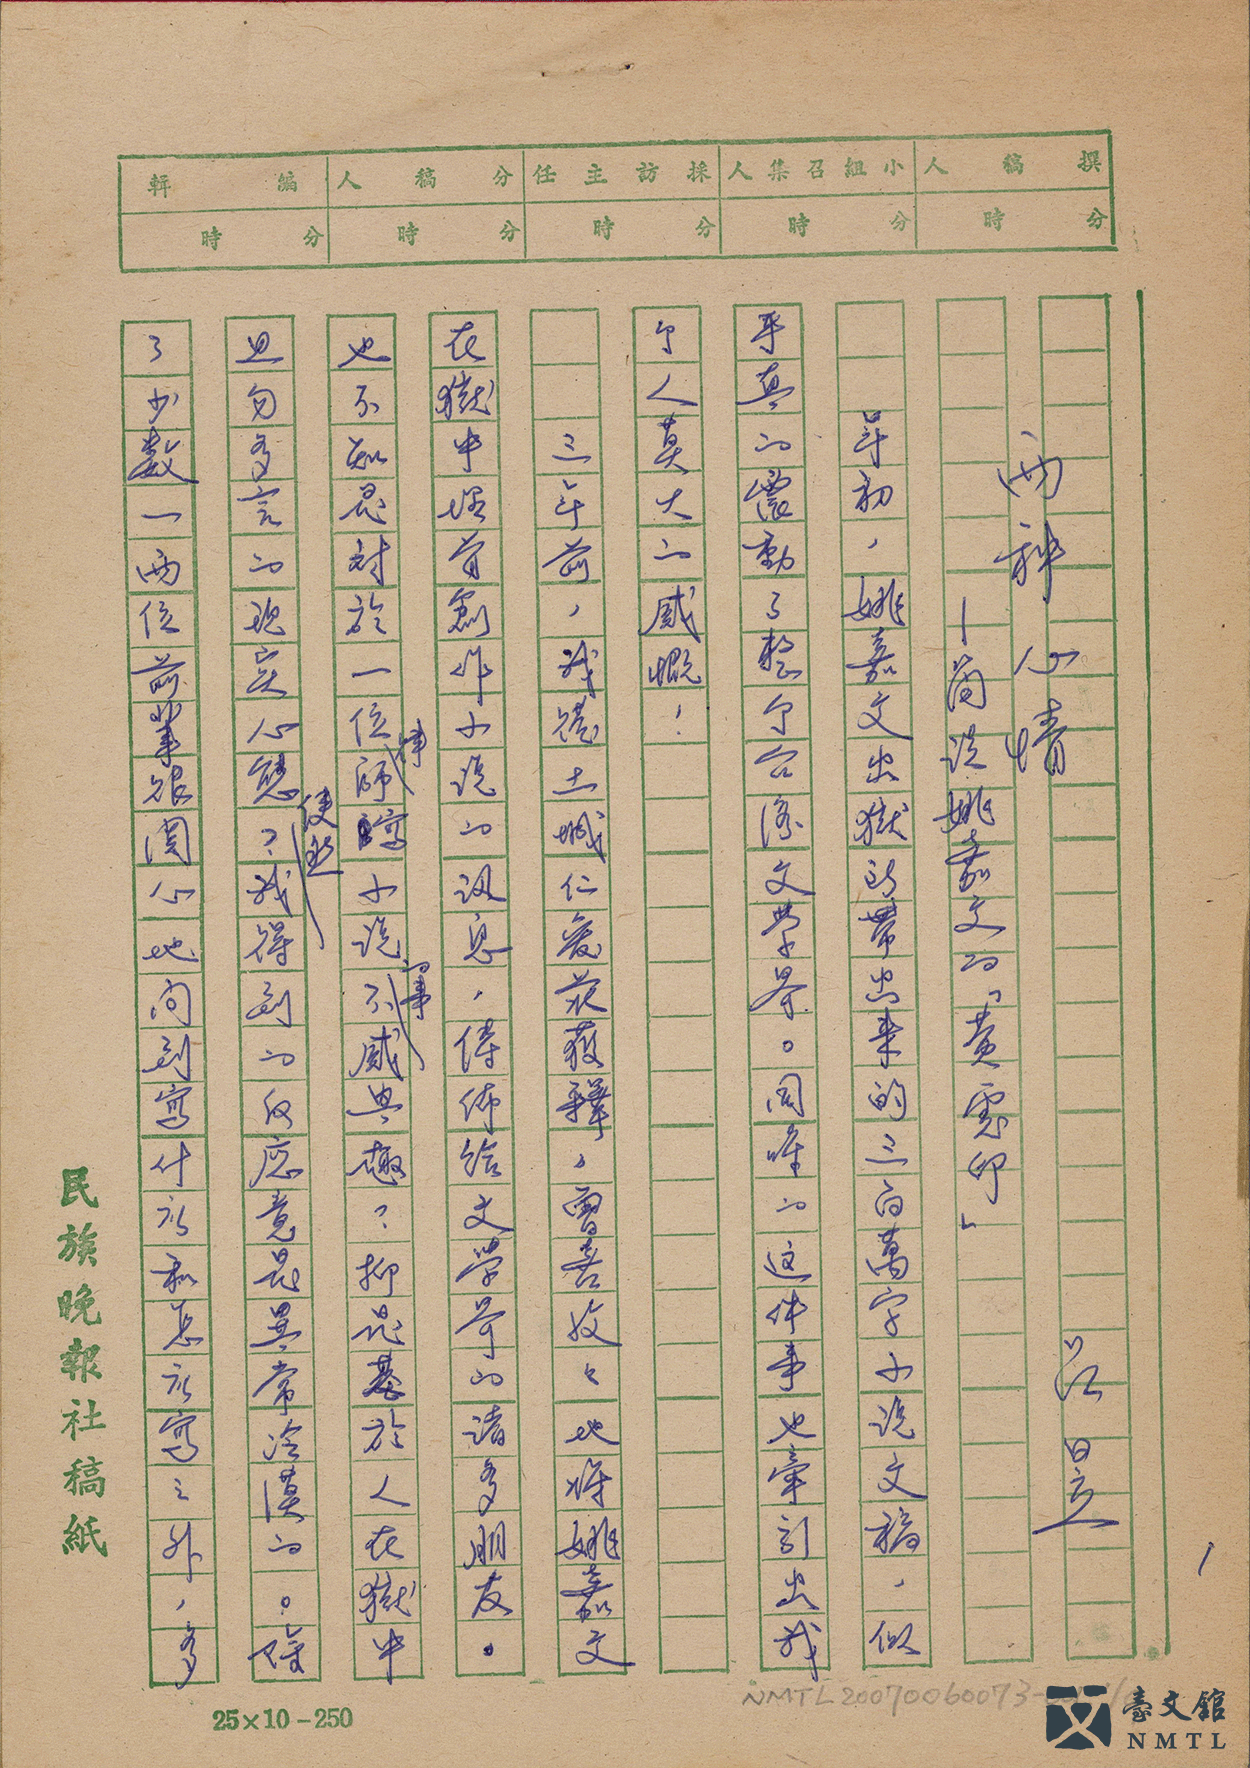 撰稿人 小組召集人 採訪主任 分稿人 編輯
分時 分時 分時 分時 分時
兩種心情 莊昱
—簡說姚嘉文的「黃虎印」
年初，姚嘉文出獄時帶出來的三百萬字小説文稿，似
乎真的震動了整個台灣文學界。同唯的這件事也牽引出我
個人莫大的感慨！
三年前，我從土城仁愛莊獲釋，曾喜孜々地將姚嘉文
在獄中埋首創作小說的訊息，傳佈給文學界的諸多朋友。
也不知是對於一位律師寫小說的事不感興趣？抑是基於人在獄中
且勿多言的現實心態使然？我得到的反應竟是異常冷漠的。除
了少數一兩位前輩很関心地问到寫什広和怎広寫之外，多
民族晚報社稿紙
25×10-250
1
NMTL20070060073
臺文館
NMTL